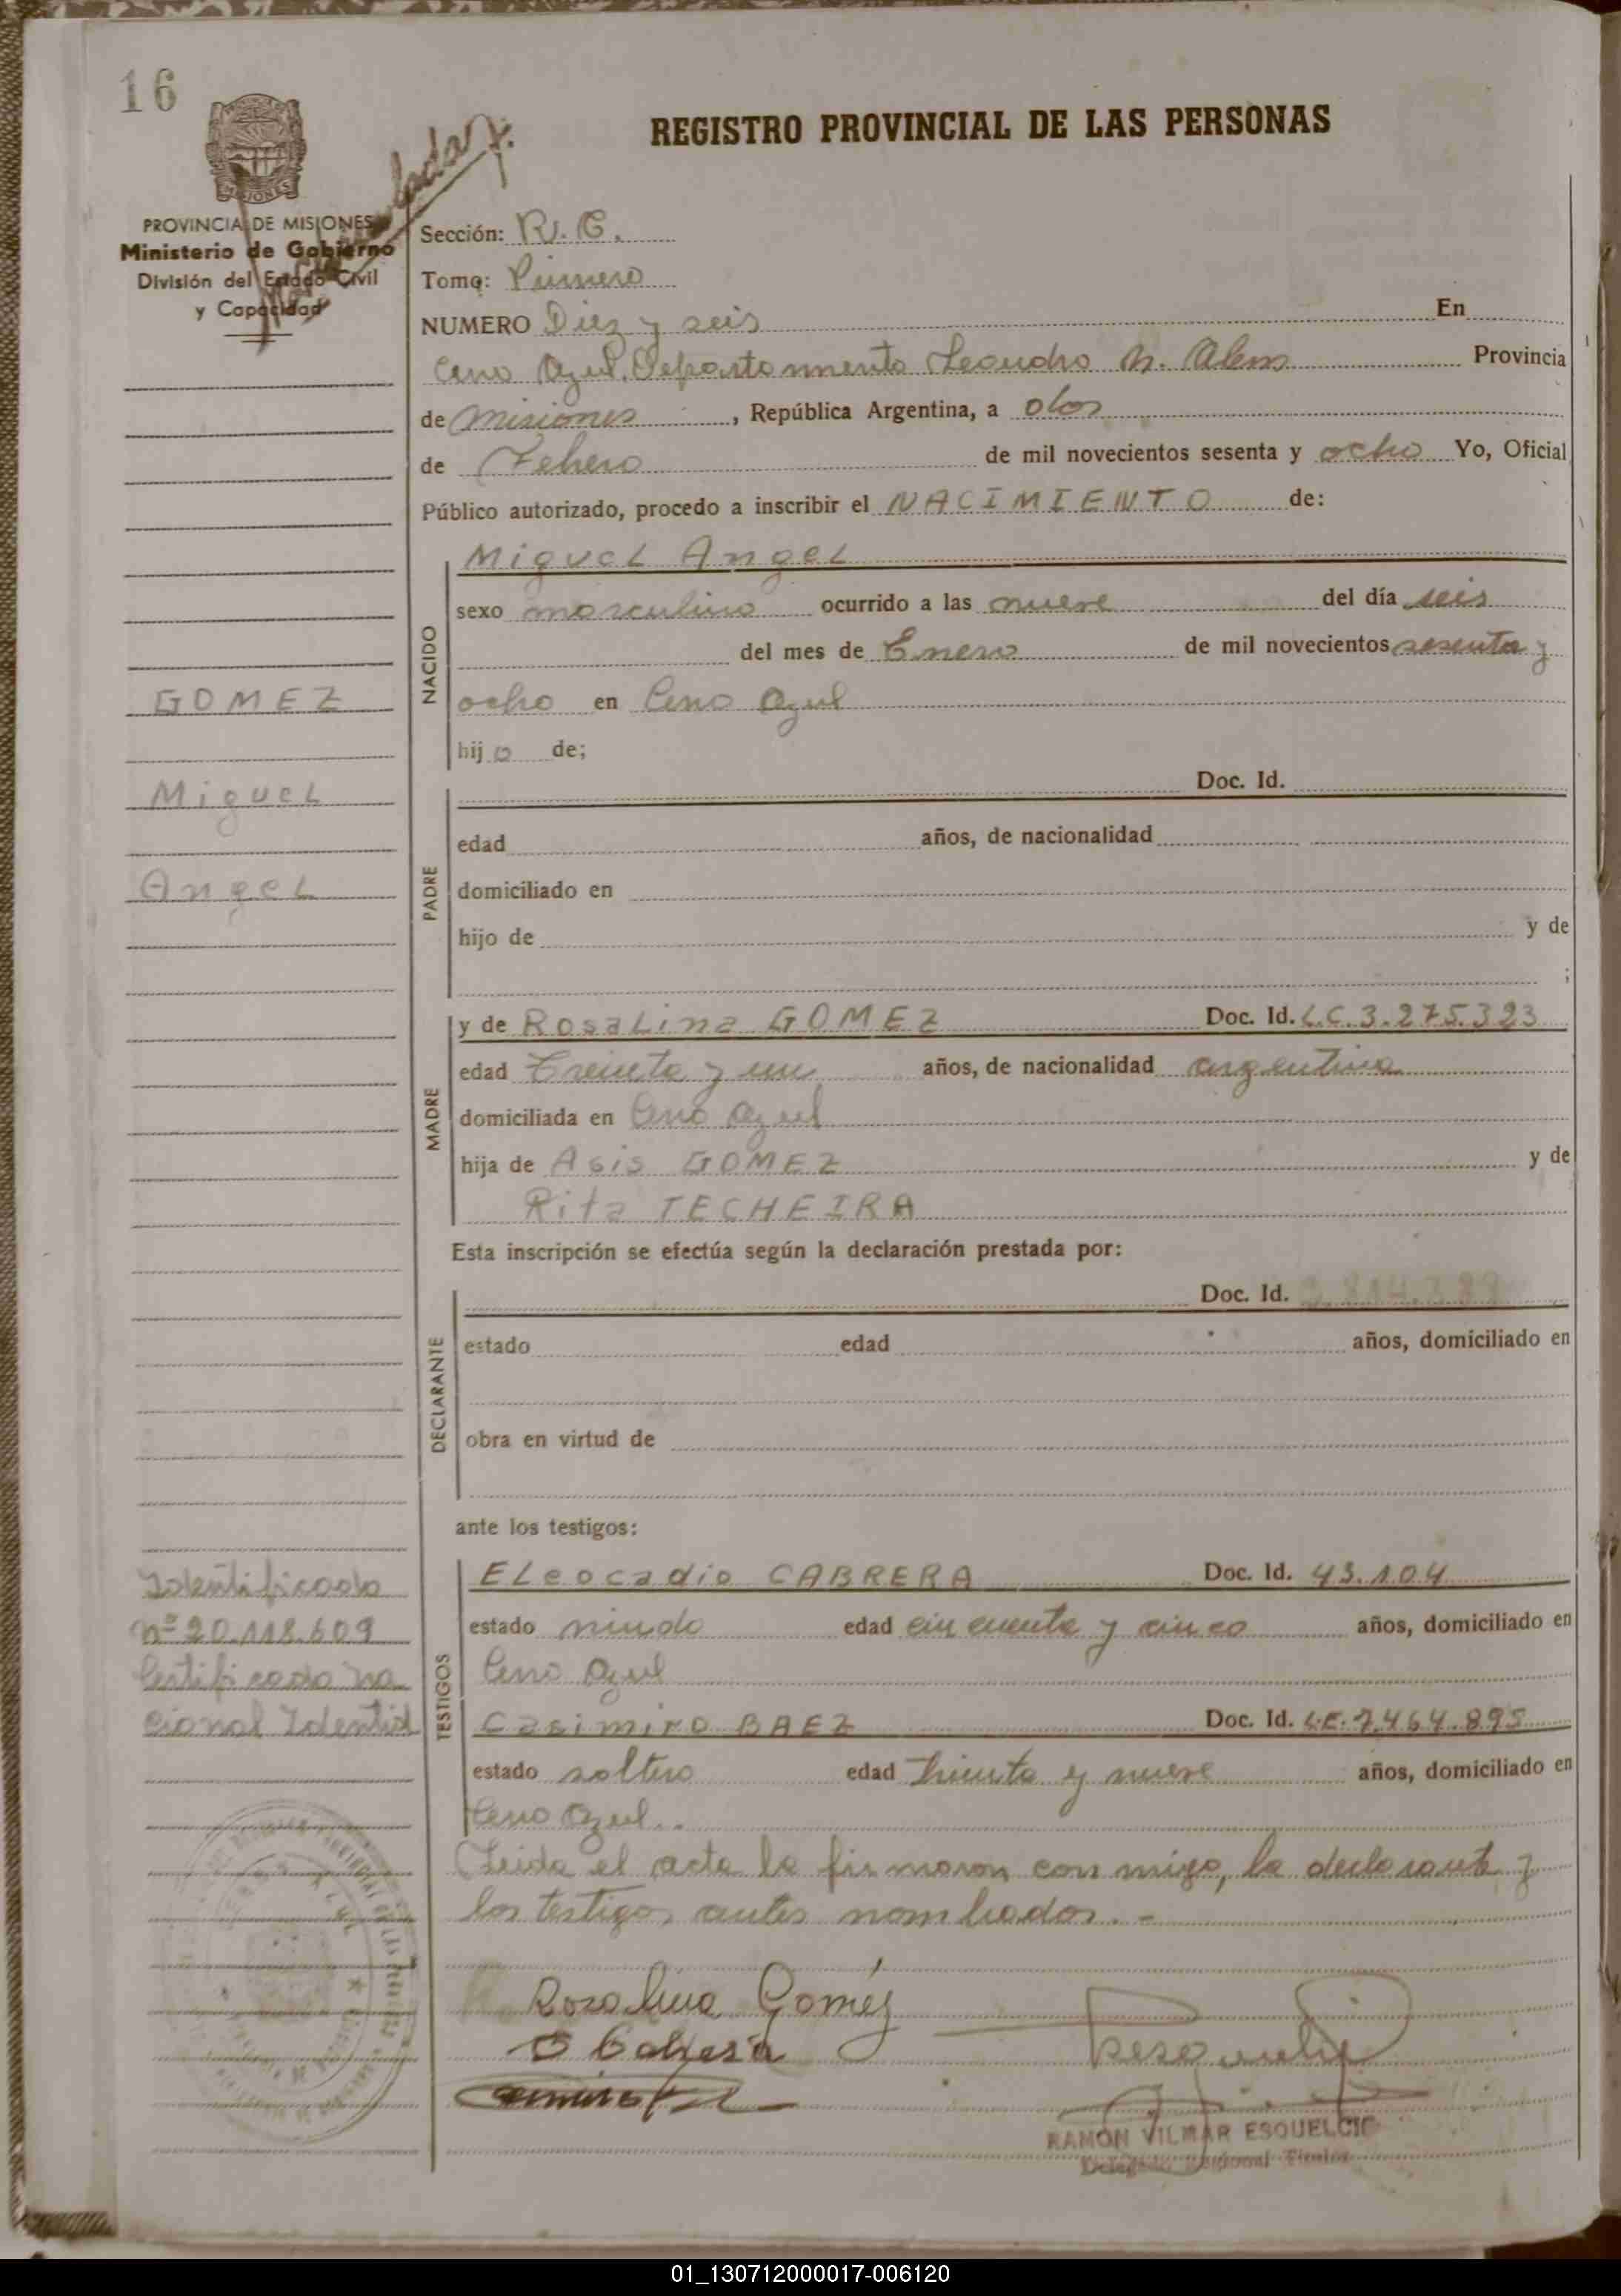 16
REGISTRO PROVINCIAL DE LAS PERSONAS
PROVINCIA DE MISIONES
Ministerio de Gobierno
División del Estado Civil
y Capacidad
Sección: R. C.
Tomo: Primero
NUMERO Diez y seis En
Cerro Azul, Departamento Leandro N. Alem Provincia
de Misiones, República Argentina, a dos
de Febrero de mil novecientos sesenta y ocho Yo, Oficial
Público autorizado, procedo a inscribir el NACIMIENTO de:
NACIDO
Miguel Angel
sexo masculino ocurrido a las nueve del día seis
del mes de Enero de mil novecientos sesenta y
ocho en Cerro Azul
hijo de;
GOMEZ
Miguel
Angel
PADRE
Doc. Id.
edad años, de nacionalidad
domiciliado en
hijo de y de
;
MADRE
y de Rosalina GOMEZ Doc. Id. L.C. 3.275.323
edad Treinta y un años, de nacionalidad argentina
domiciliada en Cerro Azul
hija de Asis GOMEZ y de
Rita TECHEIRA
Esta inscripción se efectúa según la declaración prestada por:
DECLARANTE
Doc. Id.
estado edad años, domiciliado en
obra en virtud de
ante los testigos:
TESTIGOS
Eleocadio CABRERA Doc. Id. 43.104
estado viudo edad cincuenta y cinco años, domiciliado en
Cerro Azul
Casimiro BAEZ Doc. Id. L.E. 7.464.895
estado soltero edad treinta y nueve años, domiciliado en
Cerro Azul..
Leida el acta la firmaron conmigo, la declarante y
los testigos antes nombrados. -
Identificado
nº 20.118.609
Certificado Na
cional Identid
Rosalina Goméz
E Cabrera
RAMON VILMAR ESQUELCIO
Delegado Regional Titular
01_130712000017-006120